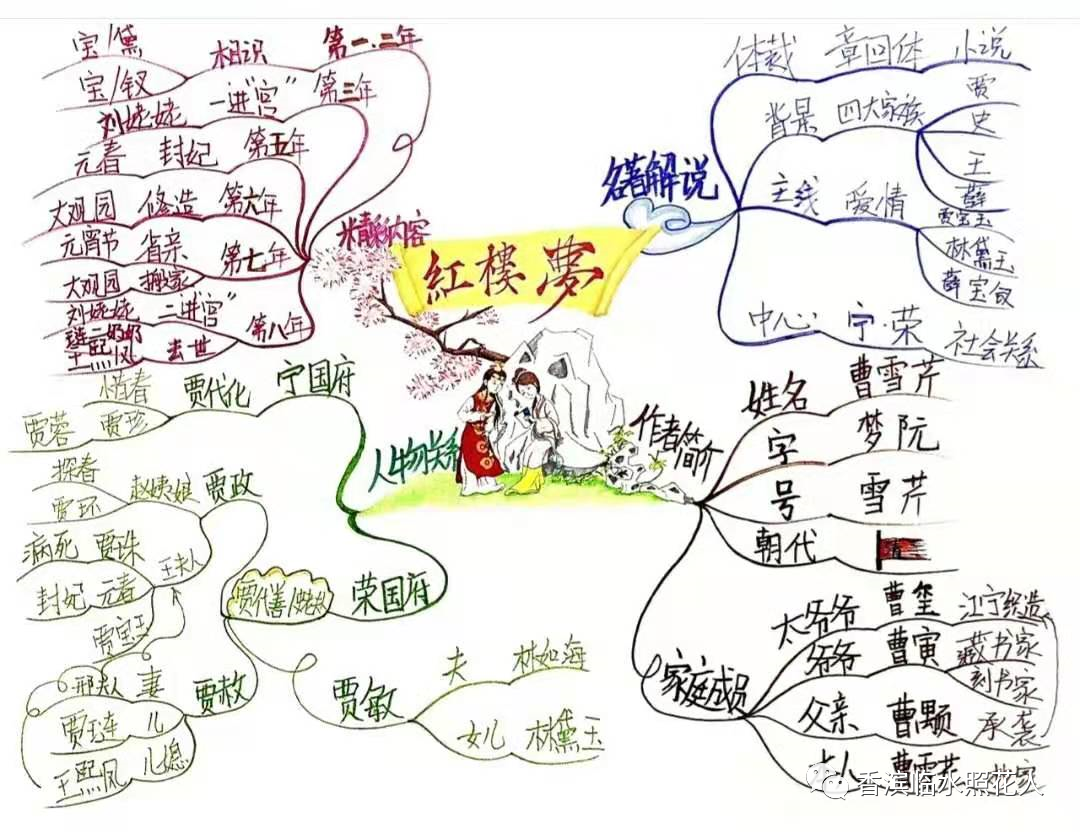 紅樓夢
名著解说
体裁 章回体 小说
背景 四大家族
贾
史
王
薛
主线 爱情
贾宝玉
林黛玉
薛宝钗
中心 宁·荣 社会关系
作者简介
姓名 曹雪芹
字 梦阮
号 雪芹
朝代
家庭成员
太爷爷 曹玺 江宁织造
爷爷 曹寅 藏书家
刻书家
父亲 曹颙 承袭
本人 曹雪芹 作家
精彩内容
第一、二年 相识 宝/黛
宝/钗
第三年 一进"宫" 刘姥姥
第五年 封妃 元春
第六年 修造 大观园
第七年 省亲 元宵节
搬家 大观园
第八年 二进"宫" 刘姥姥
去世 琏二奶奶
王熙凤
人物关系
宁国府 贾代化 惜春
贾珍 贾蓉
荣国府 贾代善/史老太
贾政 赵姨娘 探春
贾环
王夫人 贾珠 病死
元春 封妃
贾宝玉
贾赦 妻 邢夫人
儿 贾琏
儿媳 王熙凤
贾敏 夫 林如海
女儿 林黛玉
香滨临水照花人